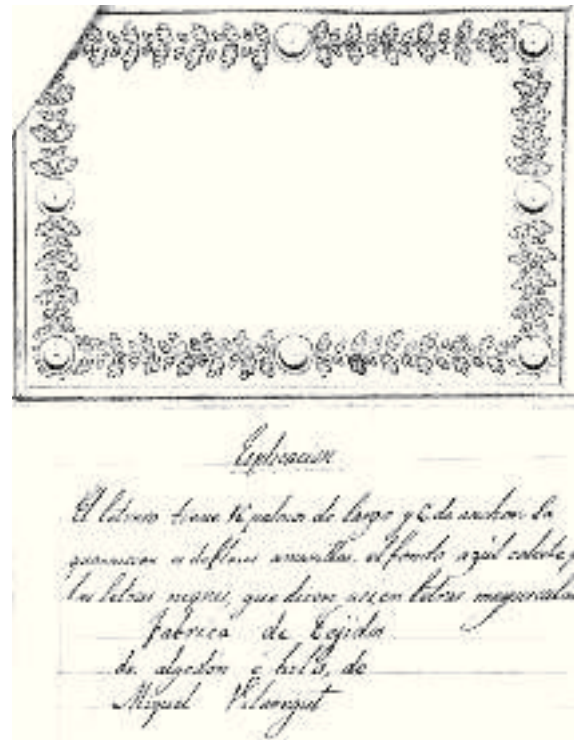 Explicacion
El letrero tiene 12 palmos de largo y 6 de anchor la
guarnicion es de flores amarillas, el fondo azul celeste y
las letras negras, que dicen asi en letras mayusculas
Fabrica de Tejidos
de algodón é hilo, de
Miguel Vilaregut